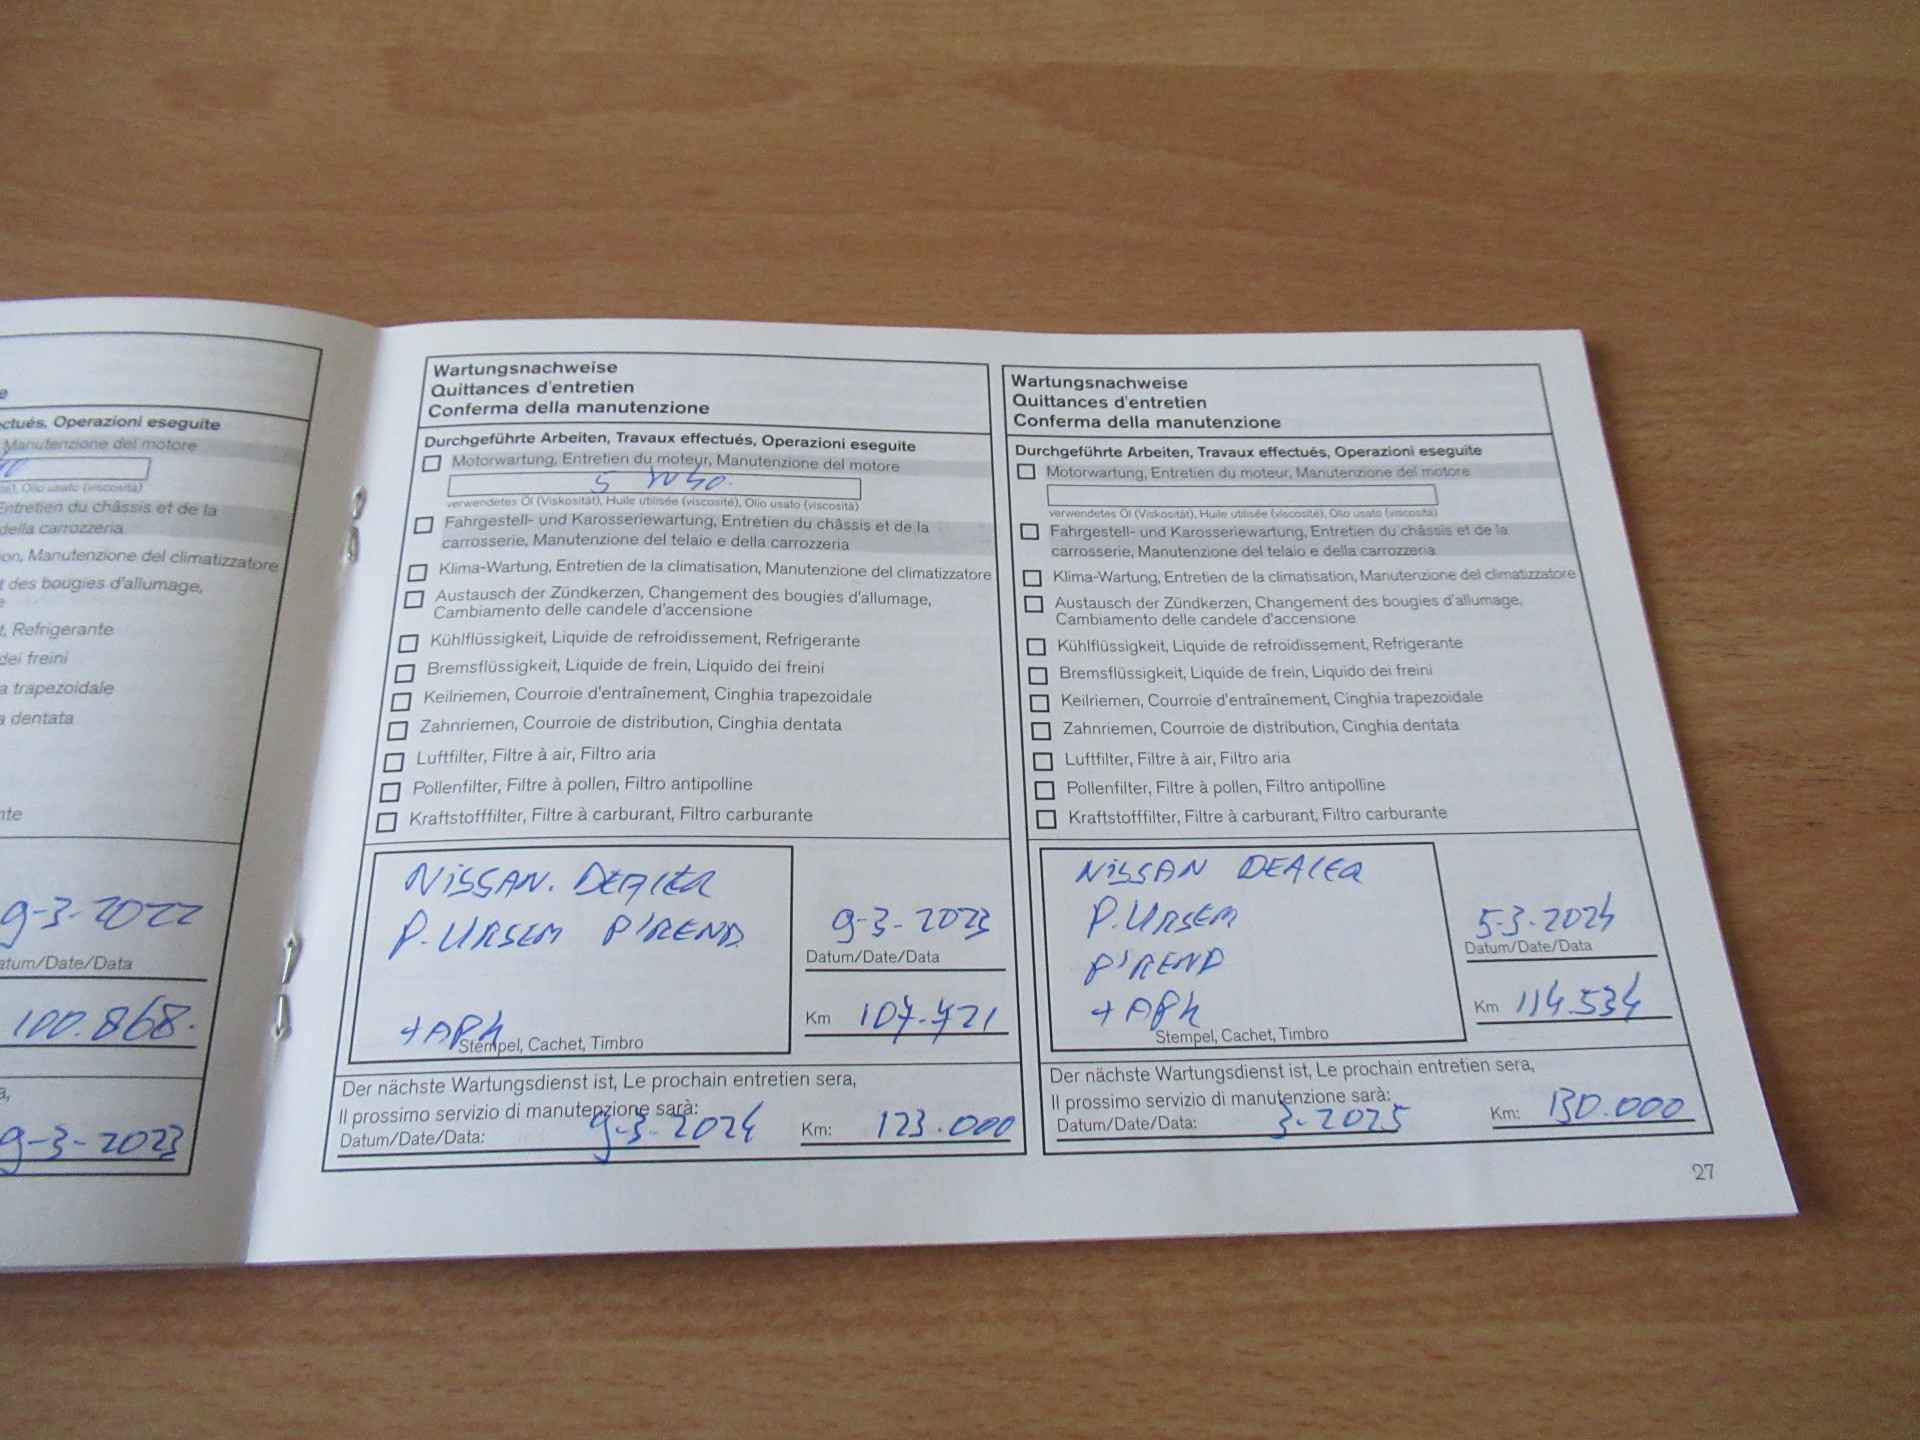 e
ectués, Operazioni eseguite
Manutenzione del motore
Olio usato (viscosità)
Entretien du châssis et de la
della carrozzeria
on, Manutenzione del climatizzatore
t des bougies d'allumage,
e
t, Refrigerante
dei freini
a trapezoidale
a dentata
nte
9-3-2022
atum/Date/Data
100.868.
a,
9-3-2023
Wartungsnachweise
Quittances d'entretien
Conferma della manutenzione
Durchgeführte Arbeiten, Travaux effectués, Operazioni eseguite
Motorwartung, Entretien du moteur, Manutenzione del motore
5 W40.
verwendetes Öl (Viskosität), Huile utilisée (viscosité), Olio usato (viscosità)
Fahrgestell- und Karosseriewartung, Entretien du châssis et de la
carrosserie, Manutenzione del telaio e della carrozzeria
Klima-Wartung, Entretien de la climatisation, Manutenzione del climatizzatore
Austausch der Zündkerzen, Changement des bougies d'allumage,
Cambiamento delle candele d'accensione
Kühlflüssigkeit, Liquide de refroidissement, Refrigerante
Bremsflüssigkeit, Liquide de frein, Liquido dei freini
Keilriemen, Courroie d'entraînement, Cinghia trapezoidale
Zahnriemen, Courroie de distribution, Cinghia dentata
Luftfilter, Filtre à air, Filtro aria
Pollenfilter, Filtre à pollen, Filtro antipolline
Kraftstofffilter, Filtre à carburant, Filtro carburante
NISSAN. DEALER
P. URSEM P'REND.
+APK
Stempel, Cachet, Timbro
9-3-2023
Datum/Date/Data
Km 107.721
Der nächste Wartungsdienst ist, Le prochain entretien sera,
Il prossimo servizio di manutenzione sarà:
Datum/Date/Data: 9-3-2024 Km: 123.000
Wartungsnachweise
Quittances d'entretien
Conferma della manutenzione
Durchgeführte Arbeiten, Travaux effectués, Operazioni eseguite
Motorwartung, Entretien du moteur, Manutenzione del motore
verwendetes Öl (Viskosität), Huile utilisée (viscosité), Olio usato (viscosità)
Fahrgestell- und Karosseriewartung, Entretien du châssis et de la
carrosserie, Manutenzione del telaio e della carrozzeria
Klima-Wartung, Entretien de la climatisation, Manutenzione del climatizzatore
Austausch der Zündkerzen, Changement des bougies d'allumage,
Cambiamento delle candele d'accensione
Kühlflüssigkeit, Liquide de refroidissement, Refrigerante
Bremsflüssigkeit, Liquide de frein, Liquido dei freini
Keilriemen, Courroie d'entraînement, Cinghia trapezoidale
Zahnriemen, Courroie de distribution, Cinghia dentata
Luftfilter, Filtre à air, Filtro aria
Pollenfilter, Filtre à pollen, Filtro antipolline
Kraftstofffilter, Filtre à carburant, Filtro carburante
NISSAN DEALER
P. URSEM
P'REND
+ APK
Stempel, Cachet, Timbro
5-3-2024
Datum/Date/Data
Km 114.534
Der nächste Wartungsdienst ist, Le prochain entretien sera,
Il prossimo servizio di manutenzione sarà:
Datum/Date/Data: 3-2025 Km: 130.000
27